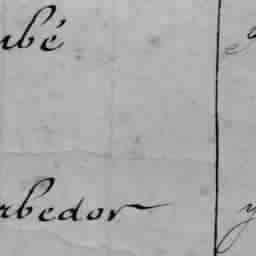 ubé
rbedor